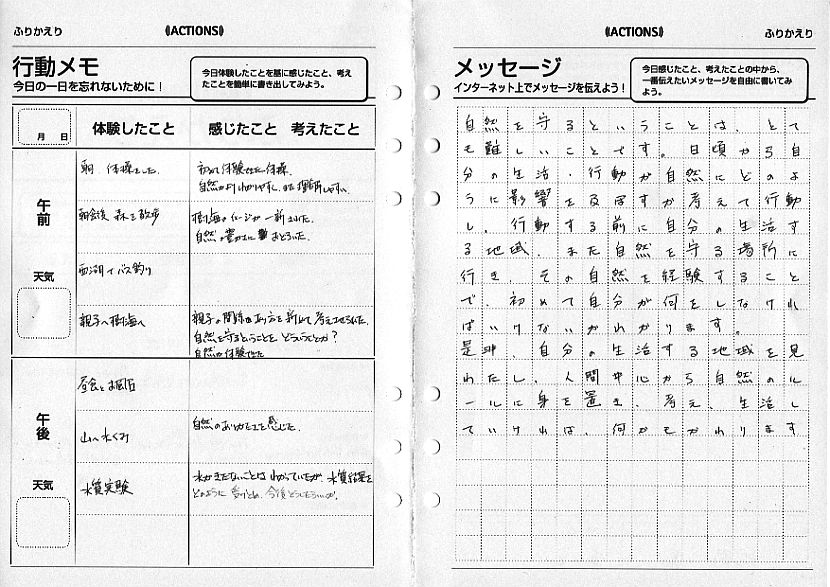 ふりかえり
《ACTIONS》
行動メモ
今日の一日を忘れないために！
今日体験したことを基に感じたこと、考え
たことを簡単に書き出してみよう。
月 日
体験したこと
感じたこと 考えたこと
午前
天気
朝 体操をした
初めて体験させた体操。
朝食後 森を散歩
樹海のイメージが一新された。
自然の豊かさに おどろいた。
西湖でバス釣り
親子へ樹海へ
自然を守るということを どういうことか？
自然の体験させた
午後
天気
昼食とお風呂
山へ水くみ
自然のありがたさを感じた。
水質実験
水がきたないことはわかっていたが、水質結果を
どのように受けとめ、今後どうしたらいいか。
《ACTIONS》
ふりかえり
メッセージ
インターネット上でメッセージを伝えよう！
今日感じたこと、考えたことの中から、
一番伝えたいメッセージを自由に書いてみ
よう。
自然を守るということは、とて
も難しいことです。日頃から自
分の生活・行動が自然にどのよ
うに影響を及ぼすか考えて行動
し、行動する前に自分の生活す
る地域、また自然を守る場所に
行き、その自然を経験すること
で、初めて自分が何をしなけれ
ばいけないかわかります。
是非、自分の生活する地域を見
わたし、人間中心から自然のル
ールに身を置き、考え、生活し
ていければ、何かをかわります